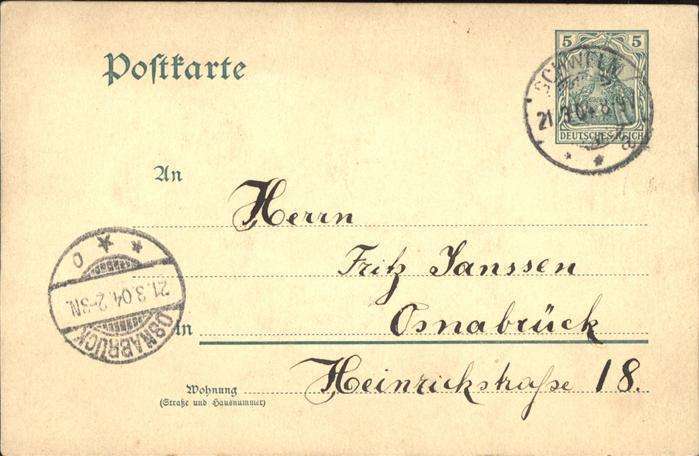 Postkarte
5 5
DEUTSCHES REICH
SCHWELM
21.3.04
An
Herrn
Fritz Janssen
in Osnabrück
Wohnung Heinrichstraße 18.
(Straße und Hausnummer)
OSNABRÜCK
21.3.04. 2-3N.